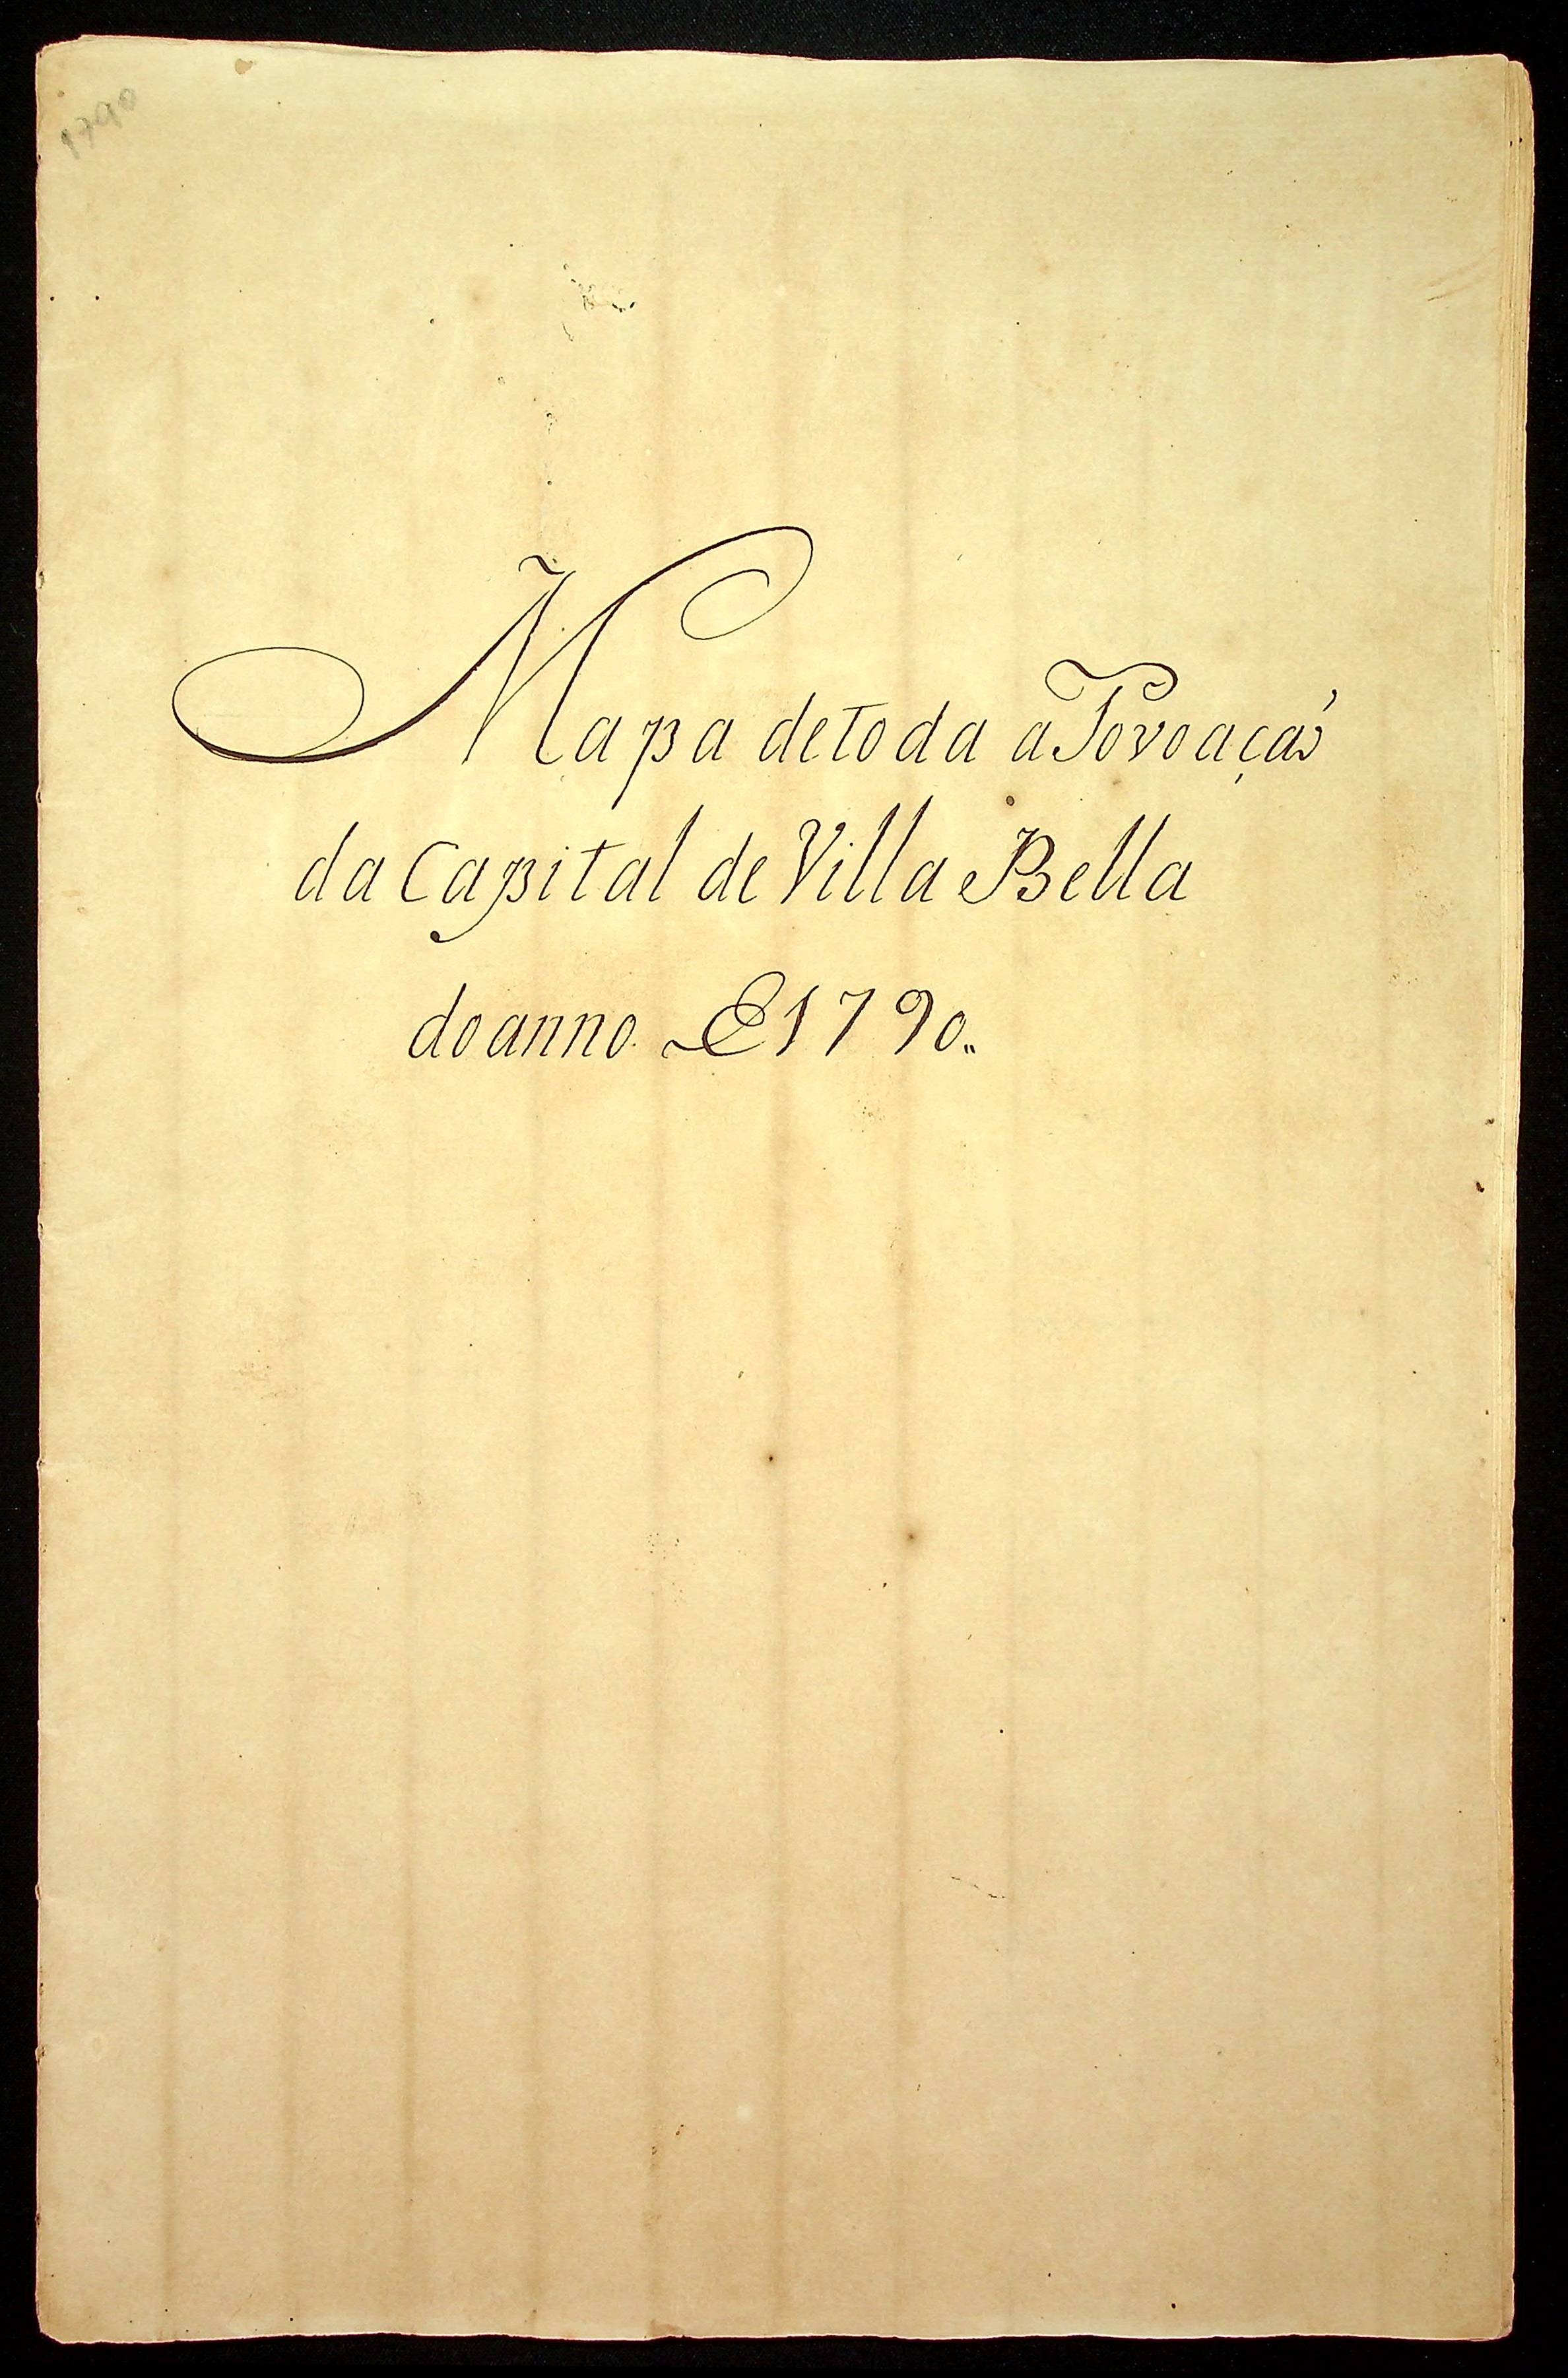 1790
Mapa de toda a Povoaçaõ
da Capital de Villa Bella
do anno de 1790